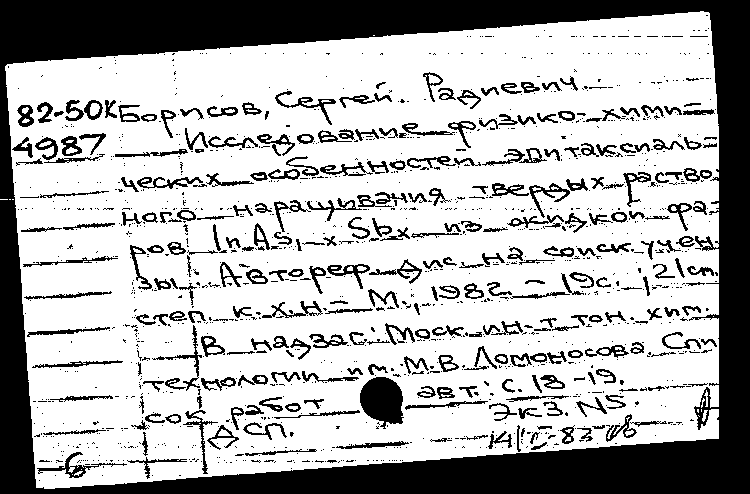 82-50К Борисов, Сергей. Радиевич.
4987 Исследование физико-хими=
ческих особенностей эпитаксиаль=
ного наращивания твердых раство-
ров InAs₁₋ₓSbₓ из жидкой фа-
зы: Автореф. дис. на соиск. учен.
степ. к.х.н. - М., 1982. - 19с.; 21см.
В надзаг: Моск. ин-т тон. хим.
технологии им. М.В. Ломоносова. Спи
сок работ авт.: с. 18-19.
ДСП. Экз. N5.
6